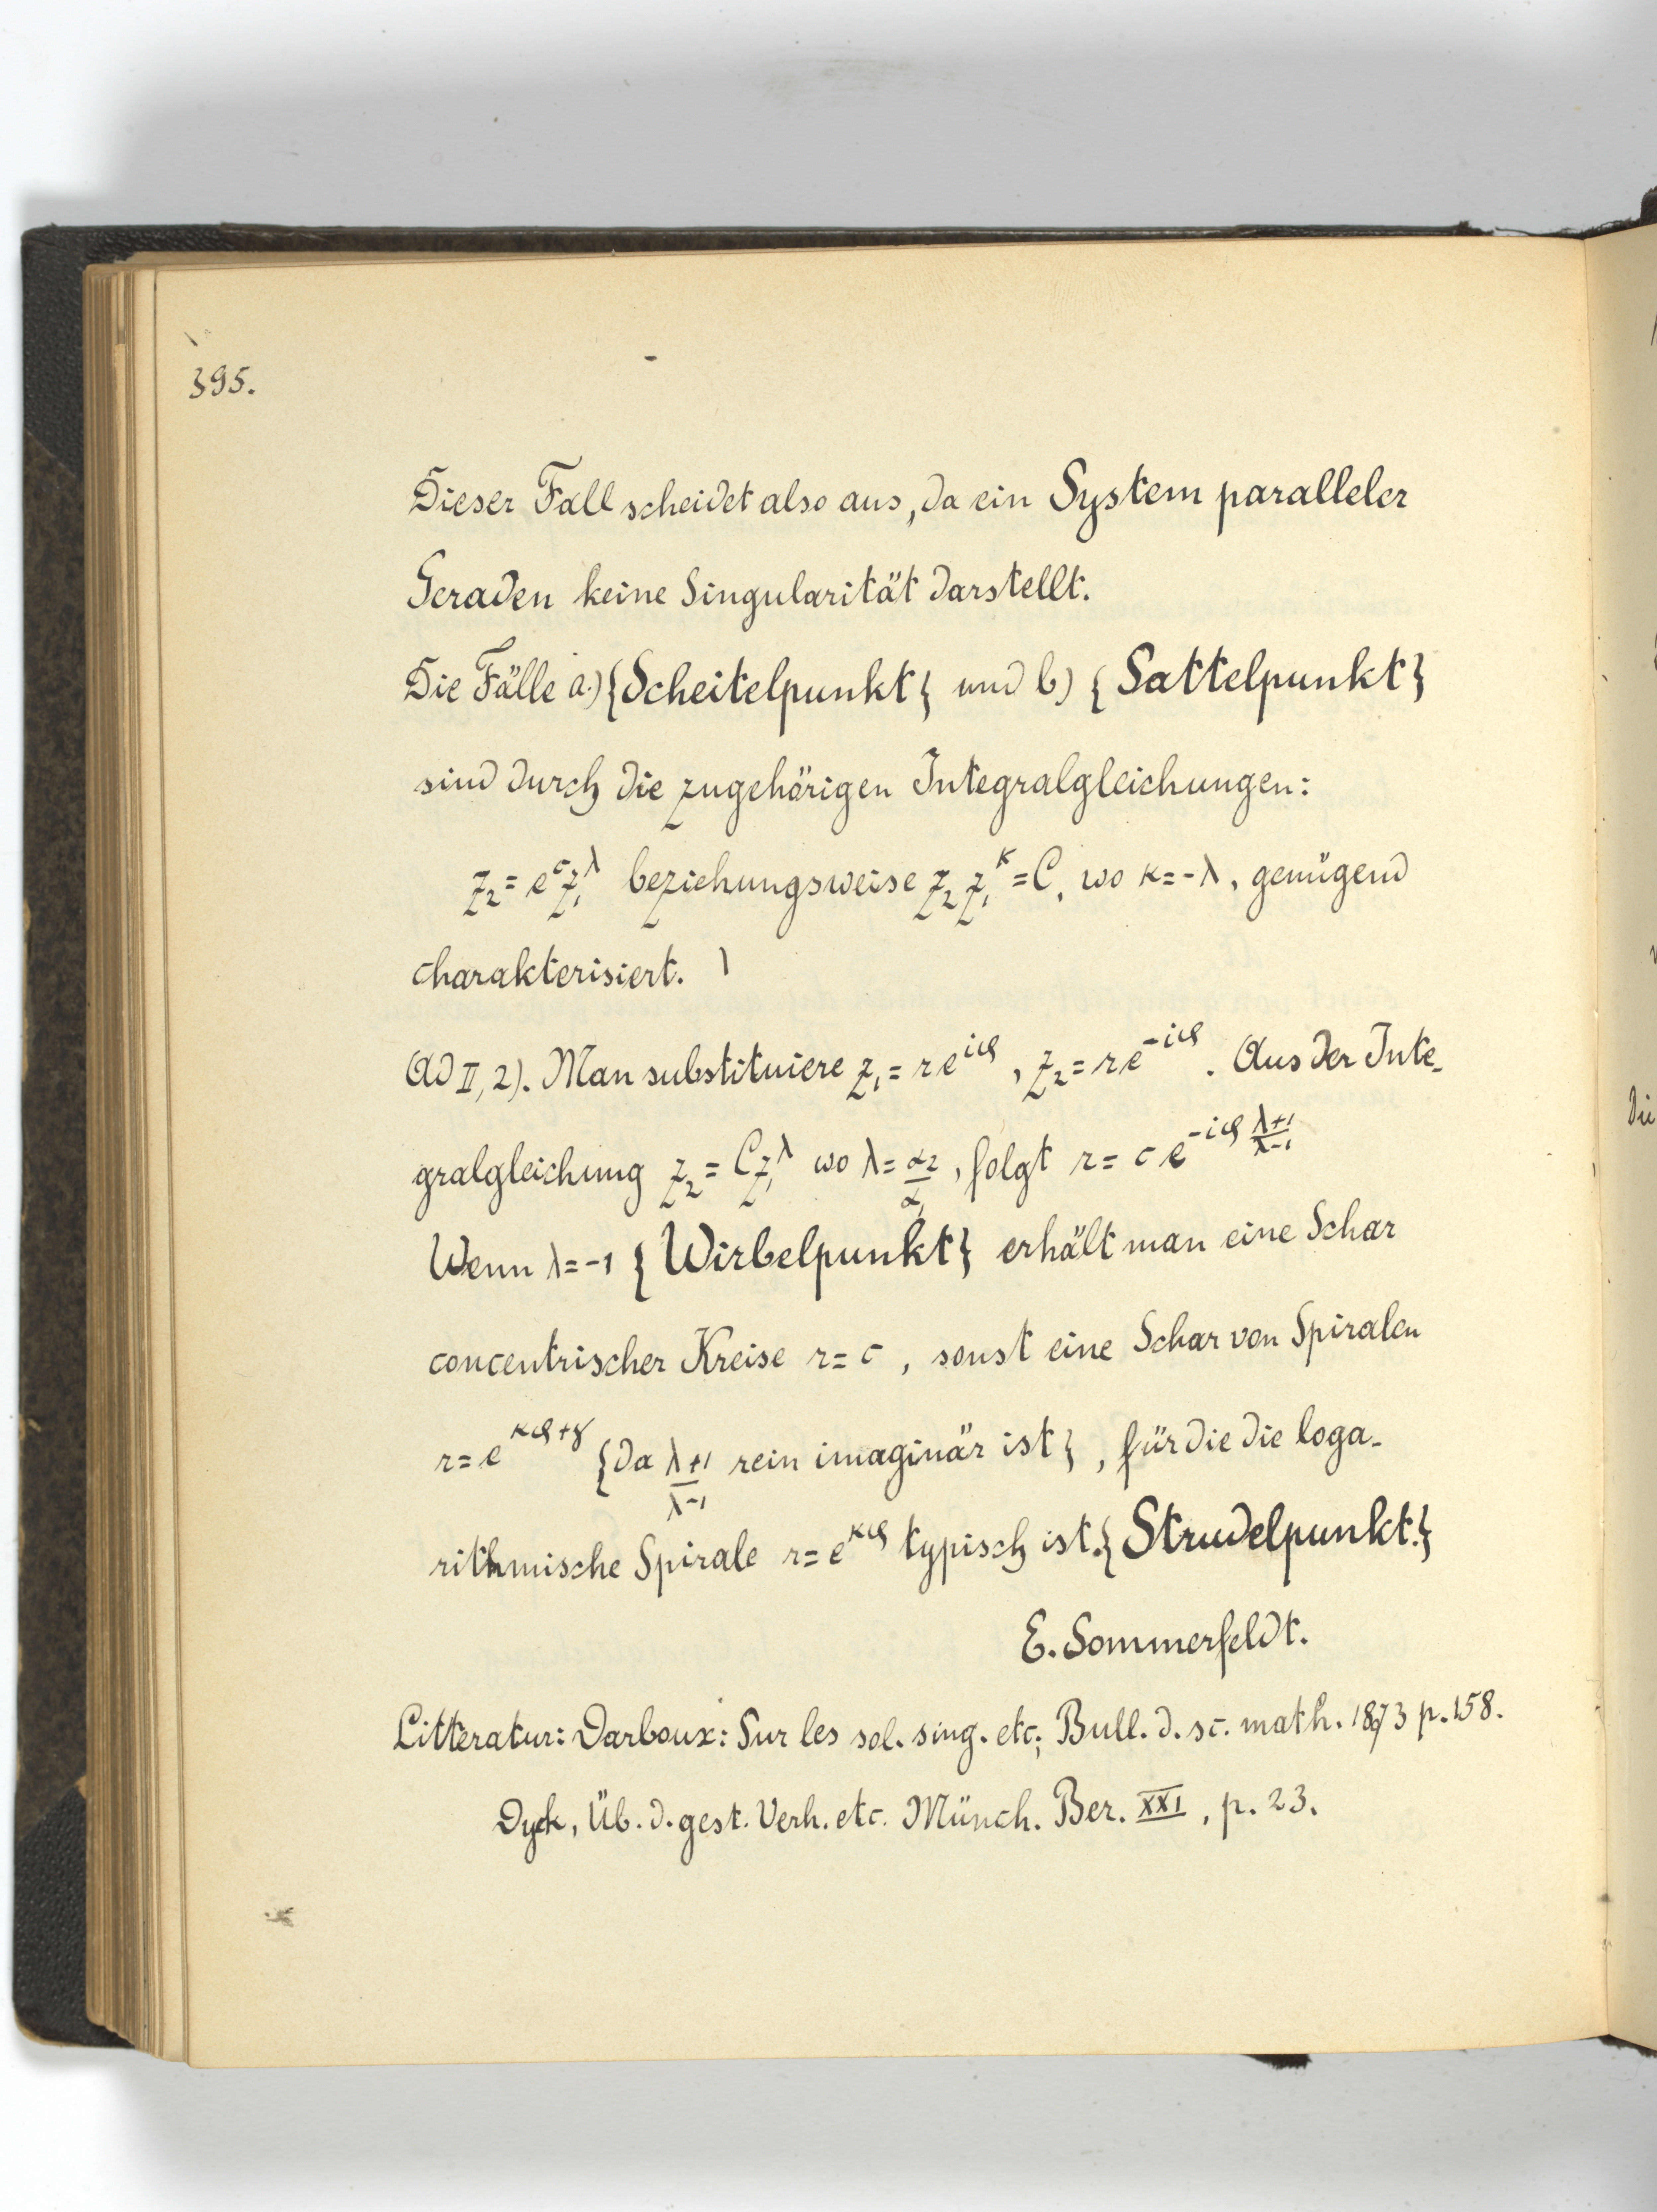 395.
Dieser Fall scheidet also aus, da ein System paralleler
Geraden keine Singularität darstellt.
Die Fälle a.) {Scheitelpunkt} und b) {Sattelpunkt}
sind durch die zugehörigen Integralgleichungen:
z₂ = e^c z₁^λ beziehungsweise z₂ z₁^κ = C, wo κ = -λ, genügend
charakterisiert.
Ad II, 2). Man substituiere z₁ = r e^{iφ}, z₂ = r e^{-iφ}. Aus der Inte-
gralgleichung z₂ = C z₁^λ wo λ = α₂/α₁, folgt r = c e^{-iφ (λ+1)/(λ-1)}
Wenn λ = -1 {Wirbelpunkt} erhält man eine Schar
concentrischer Kreise r = c, sonst eine Schar von Spiralen
r = e^{κφ+γ} {da (λ+1)/(λ-1) rein imaginär ist}, für die die loga-
rithmische Spirale r = e^{κφ} typisch ist. {Strudelpunkt.}
E. Sommerfeldt.
Litteratur: Darboux: Sur les sol. sing. etc; Bull. d. sc. math. 1873 p. 158.
Dyck, Üb. d. gest. Verh. etc. Münch. Ber. XXI, p. 23.